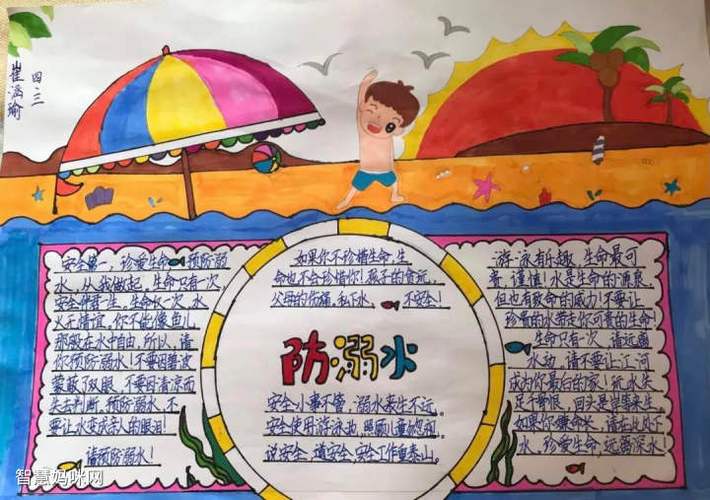 崔涵瑜
四.三
安全第一，珍爱生命。预防溺
水，从我做起，生命只有一次，
安全伴君一生。生命仅一次，水
火无情谊。你不能像鱼儿
那般在水中自由，所以，请
你预防溺水！不要因碧波
蒙蔽了双眼，不要因清凉而
失去判断，预防溺水，不
要让水变成亲人的眼泪！
请预防溺水！
如果你不珍惜生命，生
命也不会珍惜你！孩子的贪玩，
父母的伤痛。私下水，不安全！
防溺水
安全小事不管，溺水来生不远。
安全使用游泳池，照顾儿童
说安全，道安全，安全工作重泰山。
游泳有乐趣，生命最可
贵，谨慎！水是生命的源泉，
但也有致命的威力！不要让
珍贵的水带走你可贵的生命！
生命只有一次，请远离
水边，请不要让江河
成为你最后的家！玩水失
足千古恨，回头是岸等来生
如果你嫌命长，请在此处下
水，珍爱生命，远离深水！
智慧妈咪网